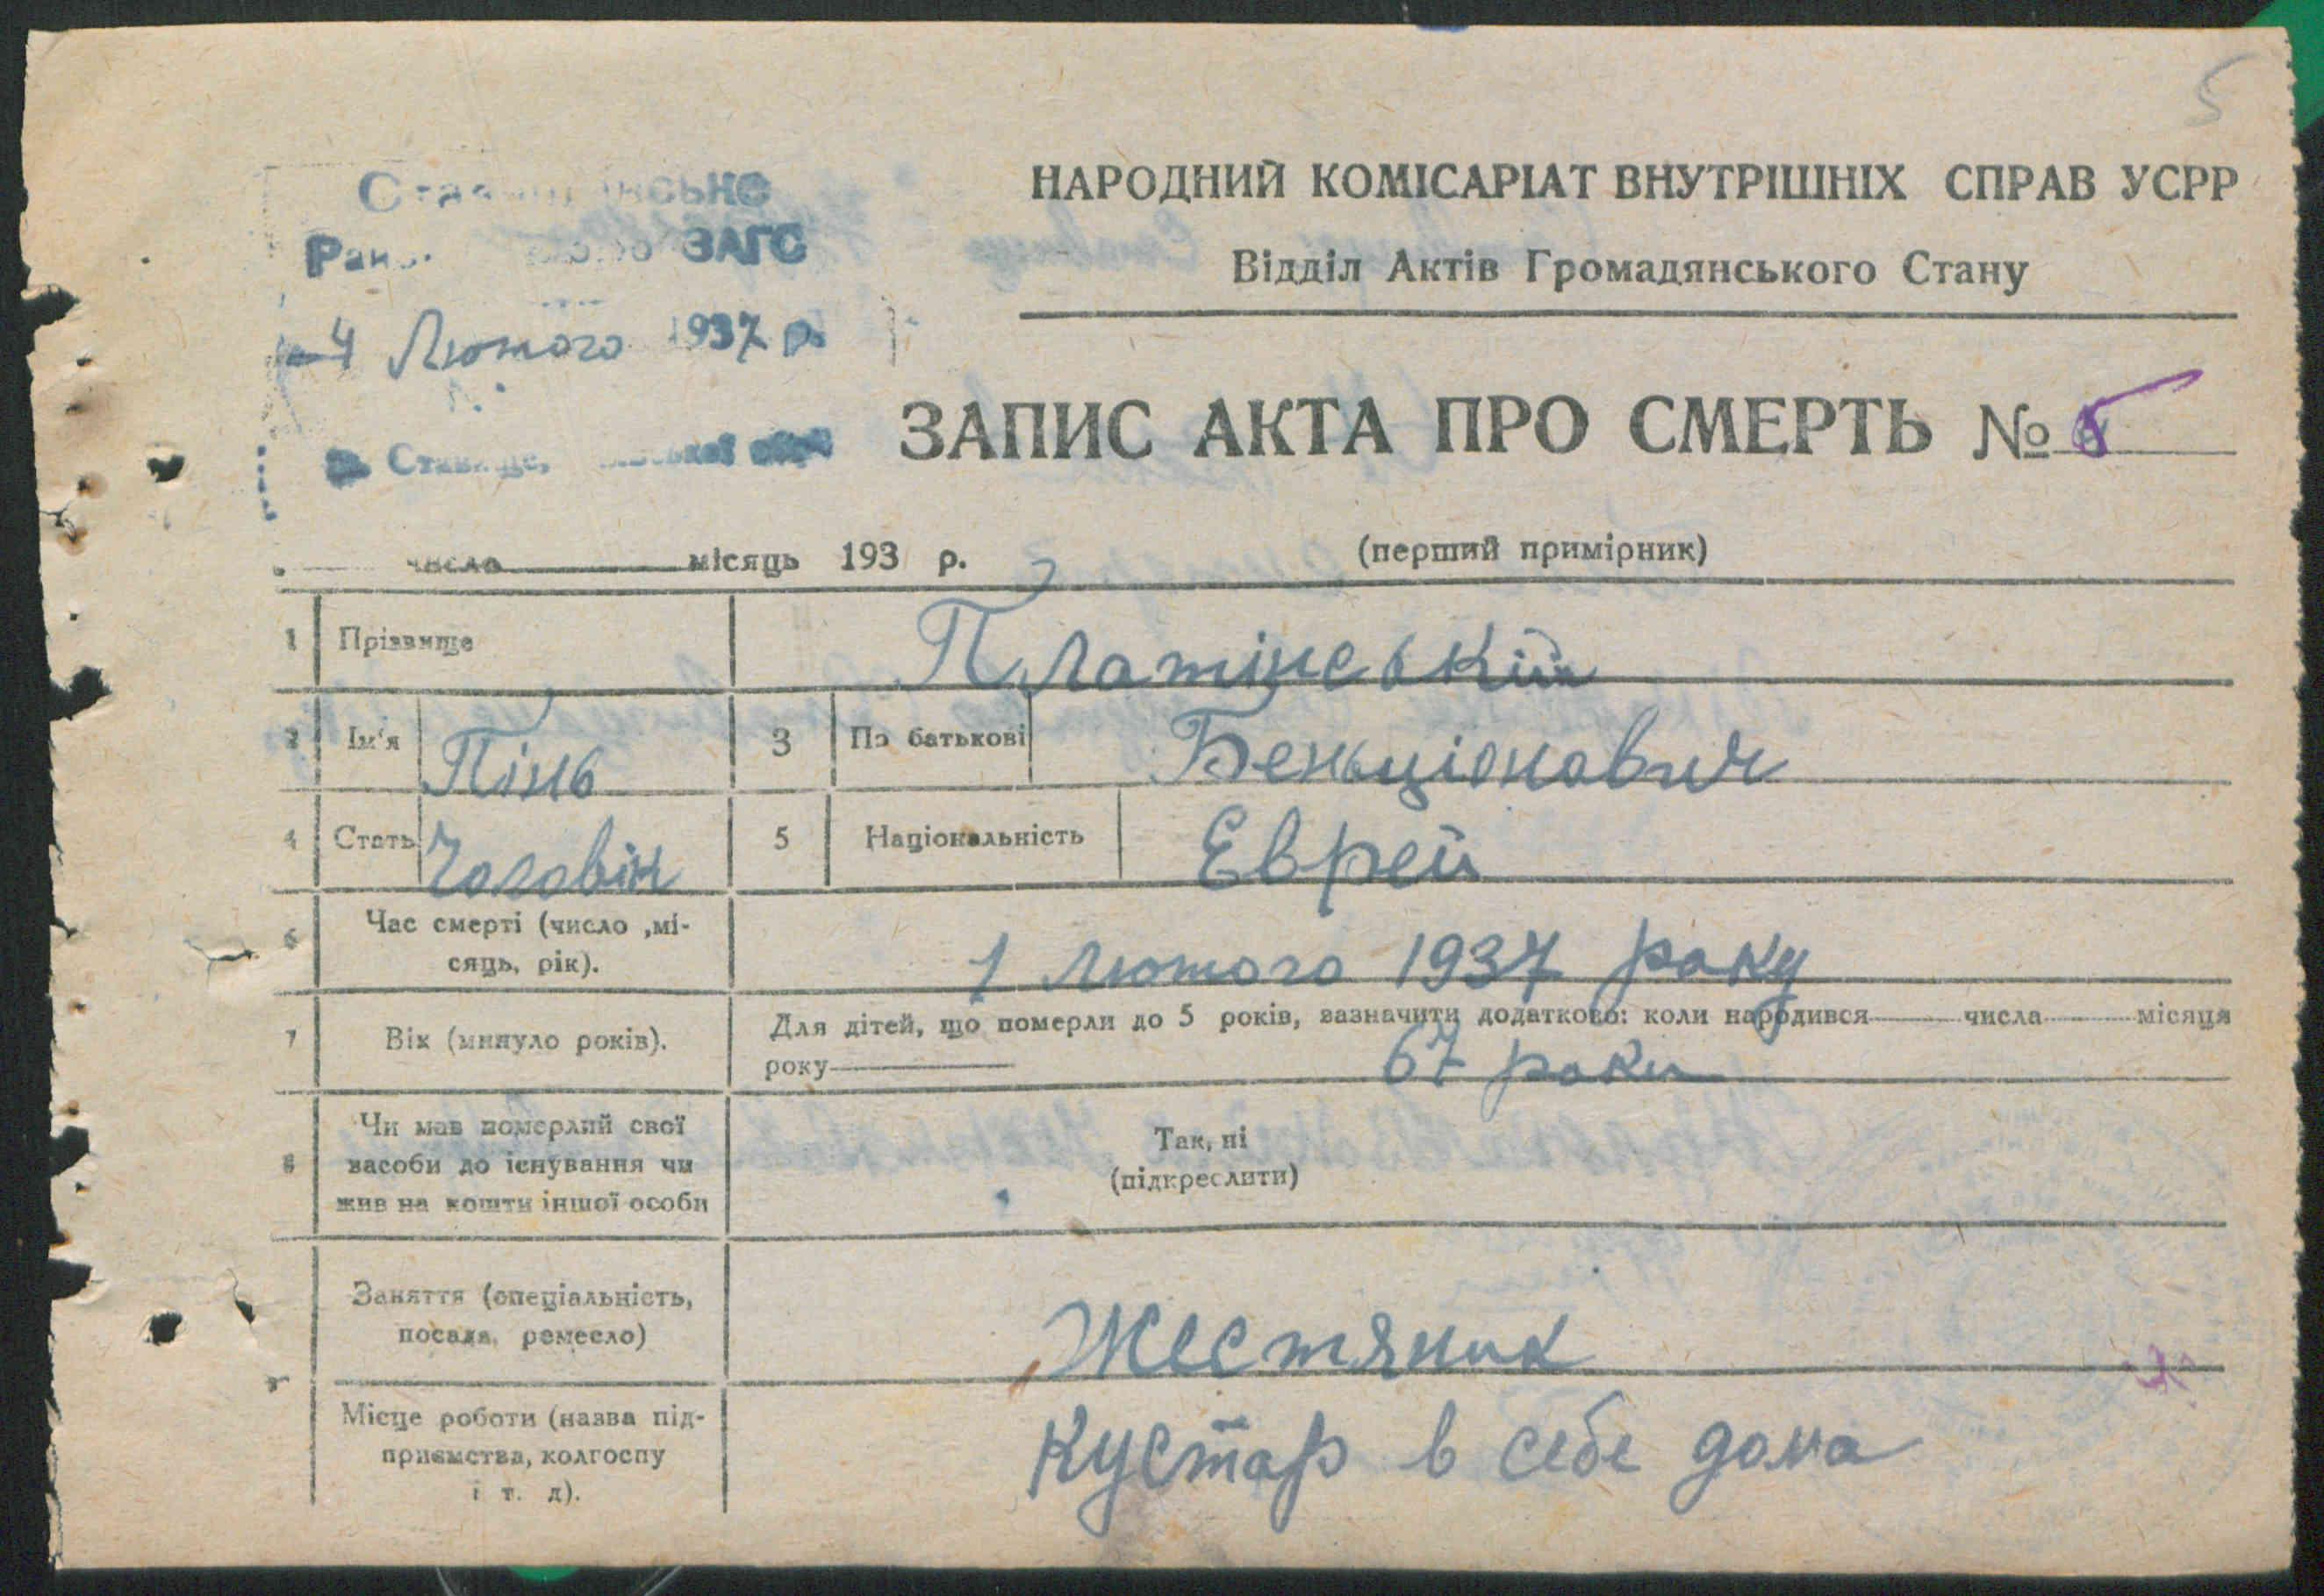 5
НАРОДНИЙ КОМІСАРІАТ ВНУТРІШНІХ СПРАВ УСРР
Відділ Актів Громадянського Стану
ЗАГС
4 Лютого 1937 р.
ЗАПИС АКТА ПРО СМЕРТЬ №
число місяць 193 р. (перший примірник)
1 Прізвище Платінській
2 Ім'я Пінь 3 По батькові Беньціонович
4 Стать Чоловік 5 Національність Еврей
6 Час смерті (число ,мі-
сяць, рік).
1 Лютого 1937 року
7 Вік (минуло років).
Для дітей, що померли до 5 років, зазначити додатково: коли народився числа місяця
року 67 роки
8 Чи мав померлий свої
засоби до існування чи
жив на кошти іншої особи
Так, ні
(підкреслити)
Заняття (спеціальність,
посада, ремесло)
Жестяник
Місце роботи (назва під-
приємства, колгоспу
і т. д).
Кустар в себе дома